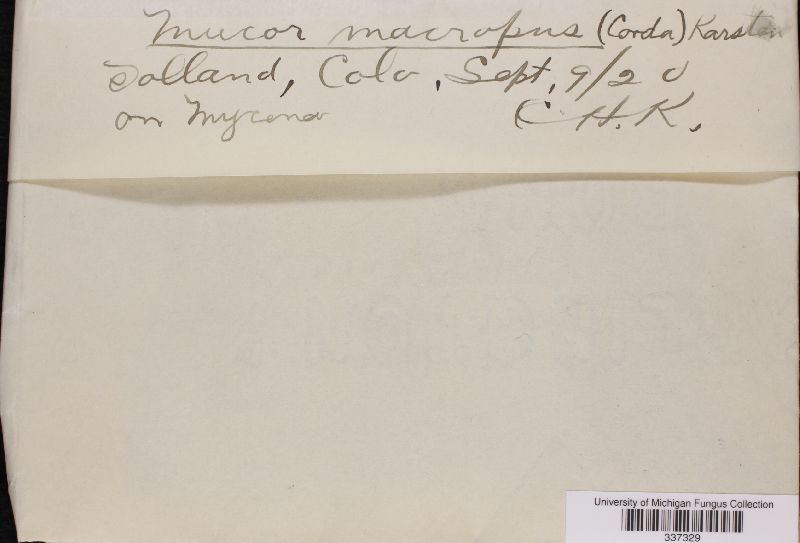 Mucor macropus (Corda) Karsten
Tolland, Colo, Sept, 9/20
on Mycena C. H. K.
University of Michigan Fungus Collection
337329